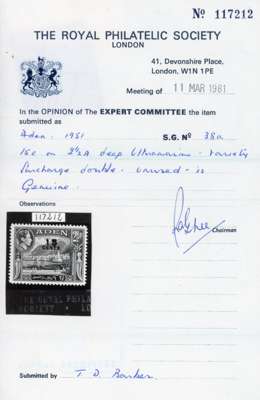 No 117212
THE ROYAL PHILATELIC SOCIETY
LONDON
41, Devonshire Place,
London, W1N 1PE
Meeting of 11 MAR 1981
In the OPINION of The EXPERT COMMITTEE the item
submitted as
Aden. 1951 S.G. No 38a
15c on 2½a deep Ultramarine - variety
Surcharge double - unused - is
Genuine.
Observations
117212
ADEN
15
CENTS
THE ROYAL PHILA
SOCIETY
Chairman
Submitted by T. D. Barker.